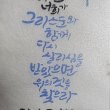 너희가
그리스도와
함께
다시
살리심을
받았으면
위의 것을
찾으라